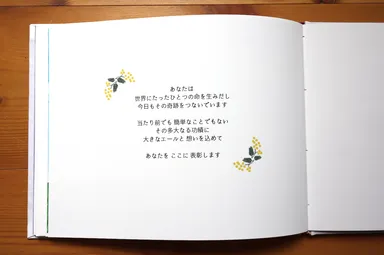 あなたは
世界にたったひとつの命を生みだし
今日もその奇跡をつないでいます
当たり前でも 簡単なことでもない
その多大なる功績に
大きなエールと 想いを込めて
あなたを ここに 表彰します